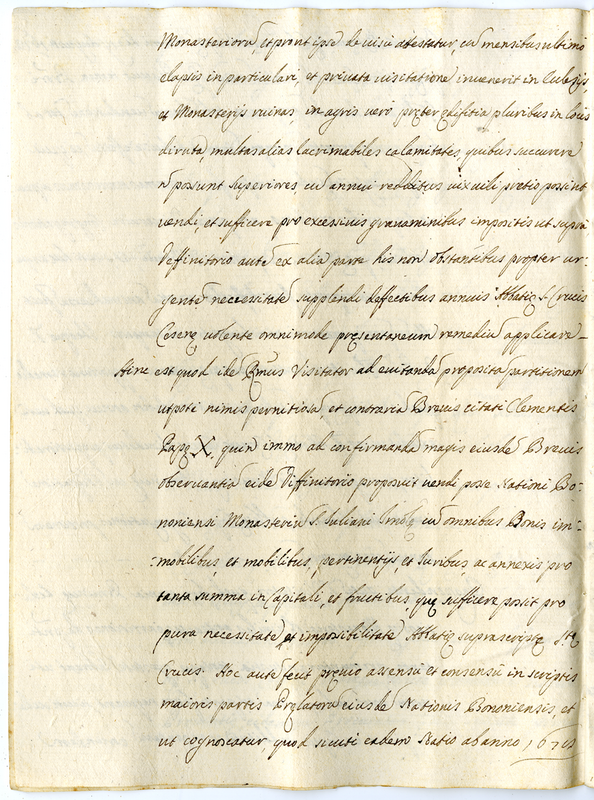 Monasteriorũ, et prout ipse de visu attestatur, cũ mensibus ultimo
elapsis in particulari, et privata visitatione invenerit in Eclesijs,
et Monasterijs ruinas, in agris verò pręter ędifitia pluribus in locis
diruta, multas alias lacrimabiles calamitates, quibus succurrere
ñ possunt Superiores, cũ annui redditus vix vili pretio possint
vendi, et sufficere pro excessivis gravaminibus impositis ut suprà
Deffinitorio autẽ ex alia parte his non obstantibus propter ur-
gentẽ necessitatẽ supplendi deffectibus annuis Abbatię S. Crucis
Cesenę volente omnimode pręsentaneum remediũ applicare
Hinc est quod idẽ Visitator ad evitandã propositã partitionem
utpotè nimis pernitiosã, et contrariã Brevis citati Clementis
Papę X, quin immo ad confirmandã magis eiusdẽ Brevis
observantiã eidẽ Diffinitorio proposuit vendi posse Nationi Bo-
noniensi Monasteriũ S. Iuliani cũ omnibus Bonis im-
:mobilibus, et mobilibus, pertinentijs, et Iuribus, ac annexis pro
tanta summa in Capitali, et fructibus, quę sufficere possit pro
pura necessitate, et impossibilitate Abbatię suprascriptę S.tę
Crucis. Hoc autẽ fecit pręvio assensu et consensũ in scriptis
maioris partis Pręlatorũ eiusdẽ Nationis Bononiensis, et
ut cognoscatur, quod sicuti eadem Natio ab anno